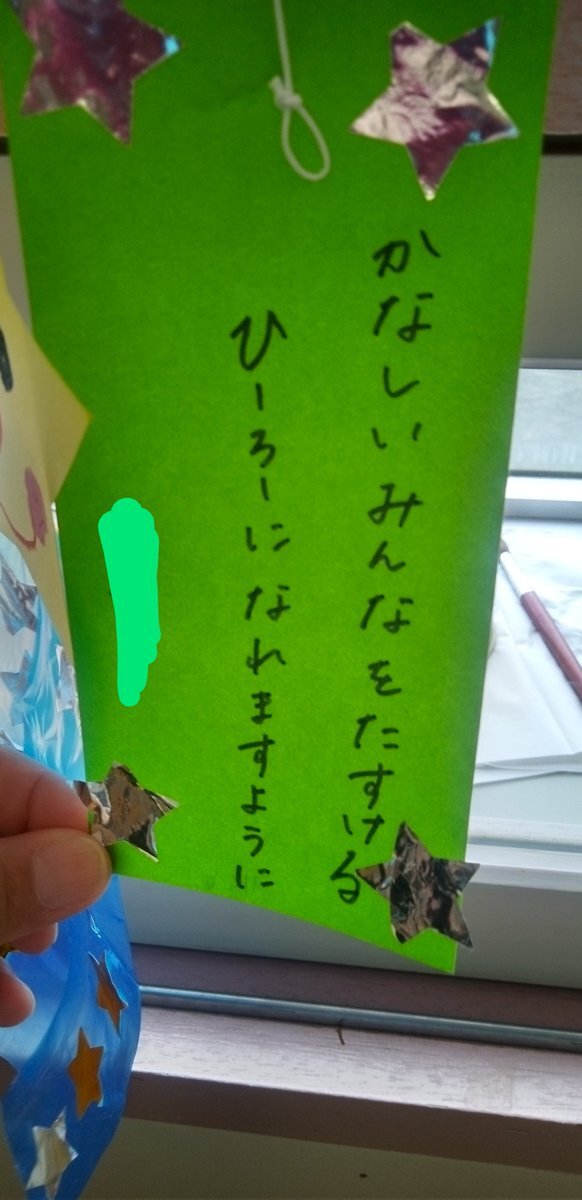 かなしいみんなをたすける
ひーろーになれますように